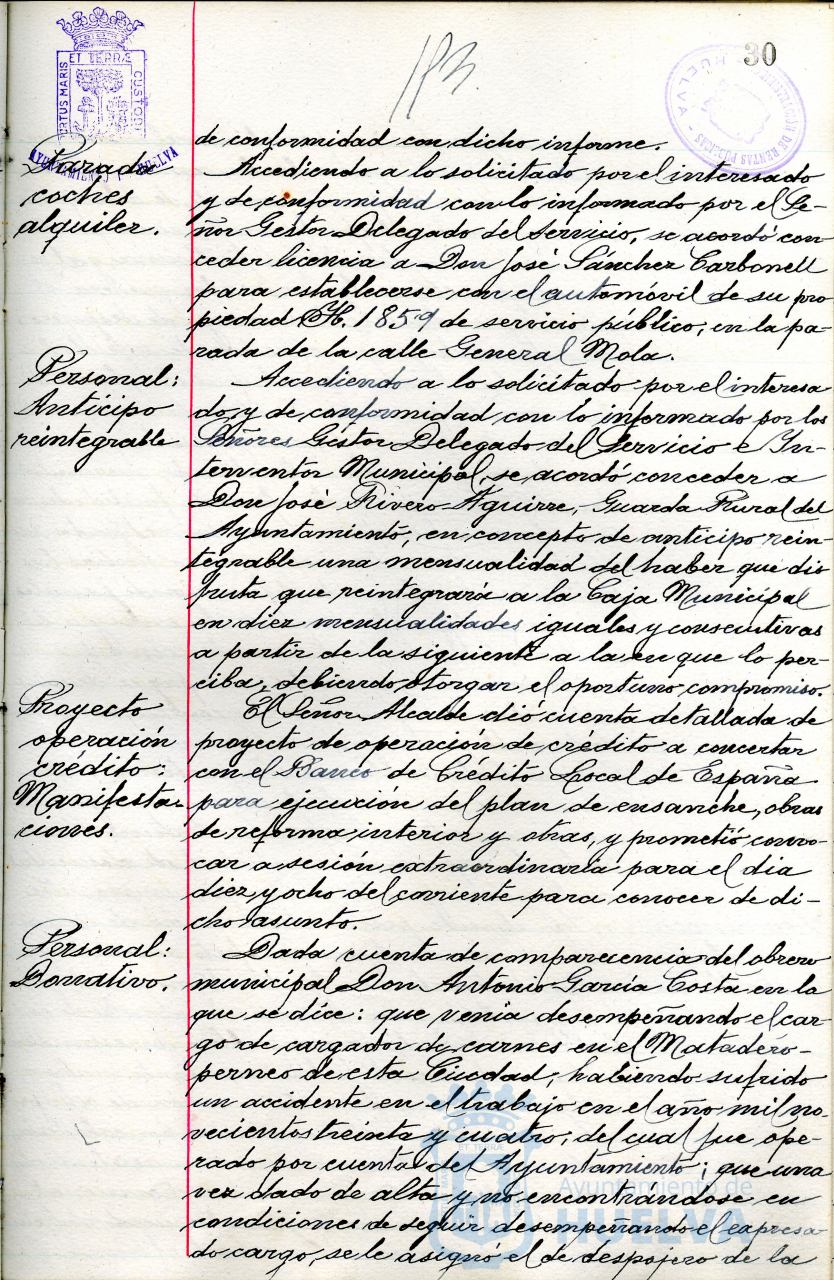 30
183.
PORTUS MARIS ET TERRÆ CUSTODI
AYUNTAMIENTO HUELVA
HUELVA
de conformidad con dicho informe.
Parada
coches
alquiler.
Accediendo a lo solicitado por el interesado
y de conformidad con lo informado por el Se-
ñor Gestor Delegado del Servicio, se acordó con
ceder licencia a Don José Sánchez Carbonell
para establecerse con el automóvil de su pro
piedad H. 1859 de servicio público, en la pa-
rada de la calle General Mola.
Personal:
Anticipo
reintegrable
Accediendo a lo solicitado por el interesa
do, y de conformidad con lo informado por los
Señores Gestor Delegado del Servicio e In-
terventor Municipal, se acordó conceder a
Don José Rivero Aguirre, Guarda Rural del
Ayuntamiento, en concepto de anticipo rein-
tegrable una mensualidad del haber que dis
fruta que reintegrará a la Caja Municipal
en diez mensualidades iguales y consecutivas
a partir de la siguiente a la en que lo per-
ciba, debiendo otorgar el oportuno compromiso.
Proyecto
operación
crédito:
Manifesta-
ciones.
El Señor Alcalde dió cuenta detallada de
proyecto de operación de crédito a concertar
con el Banco de Crédito Local de España
para ejecución del plan de ensanche, obras
de reforma interior y otras, y prometió convo-
car a sesión extraordinaria para el dia
diez y ocho del corriente para conocer de di-
cho asunto.
Personal:
Donativo.
Dada cuenta de comparecencia del obrero
municipal Don Antonio García Costa en la
que se dice: que venia desempeñando el car-
go de cargador de carnes en el Matadero-
perneo de esta Ciudad, habiendo sufrido
un accidente en el trabajo en el año mil no-
vecientos treinta y cuatro, del cual fue ope-
rado por cuenta del Ayuntamiento; que una
vez dado de alta y no encontrándose en
condiciones de seguir desempeñando el expresa-
do cargo, se le asignó el de despojero de la
Ayuntamiento de
HUELVA